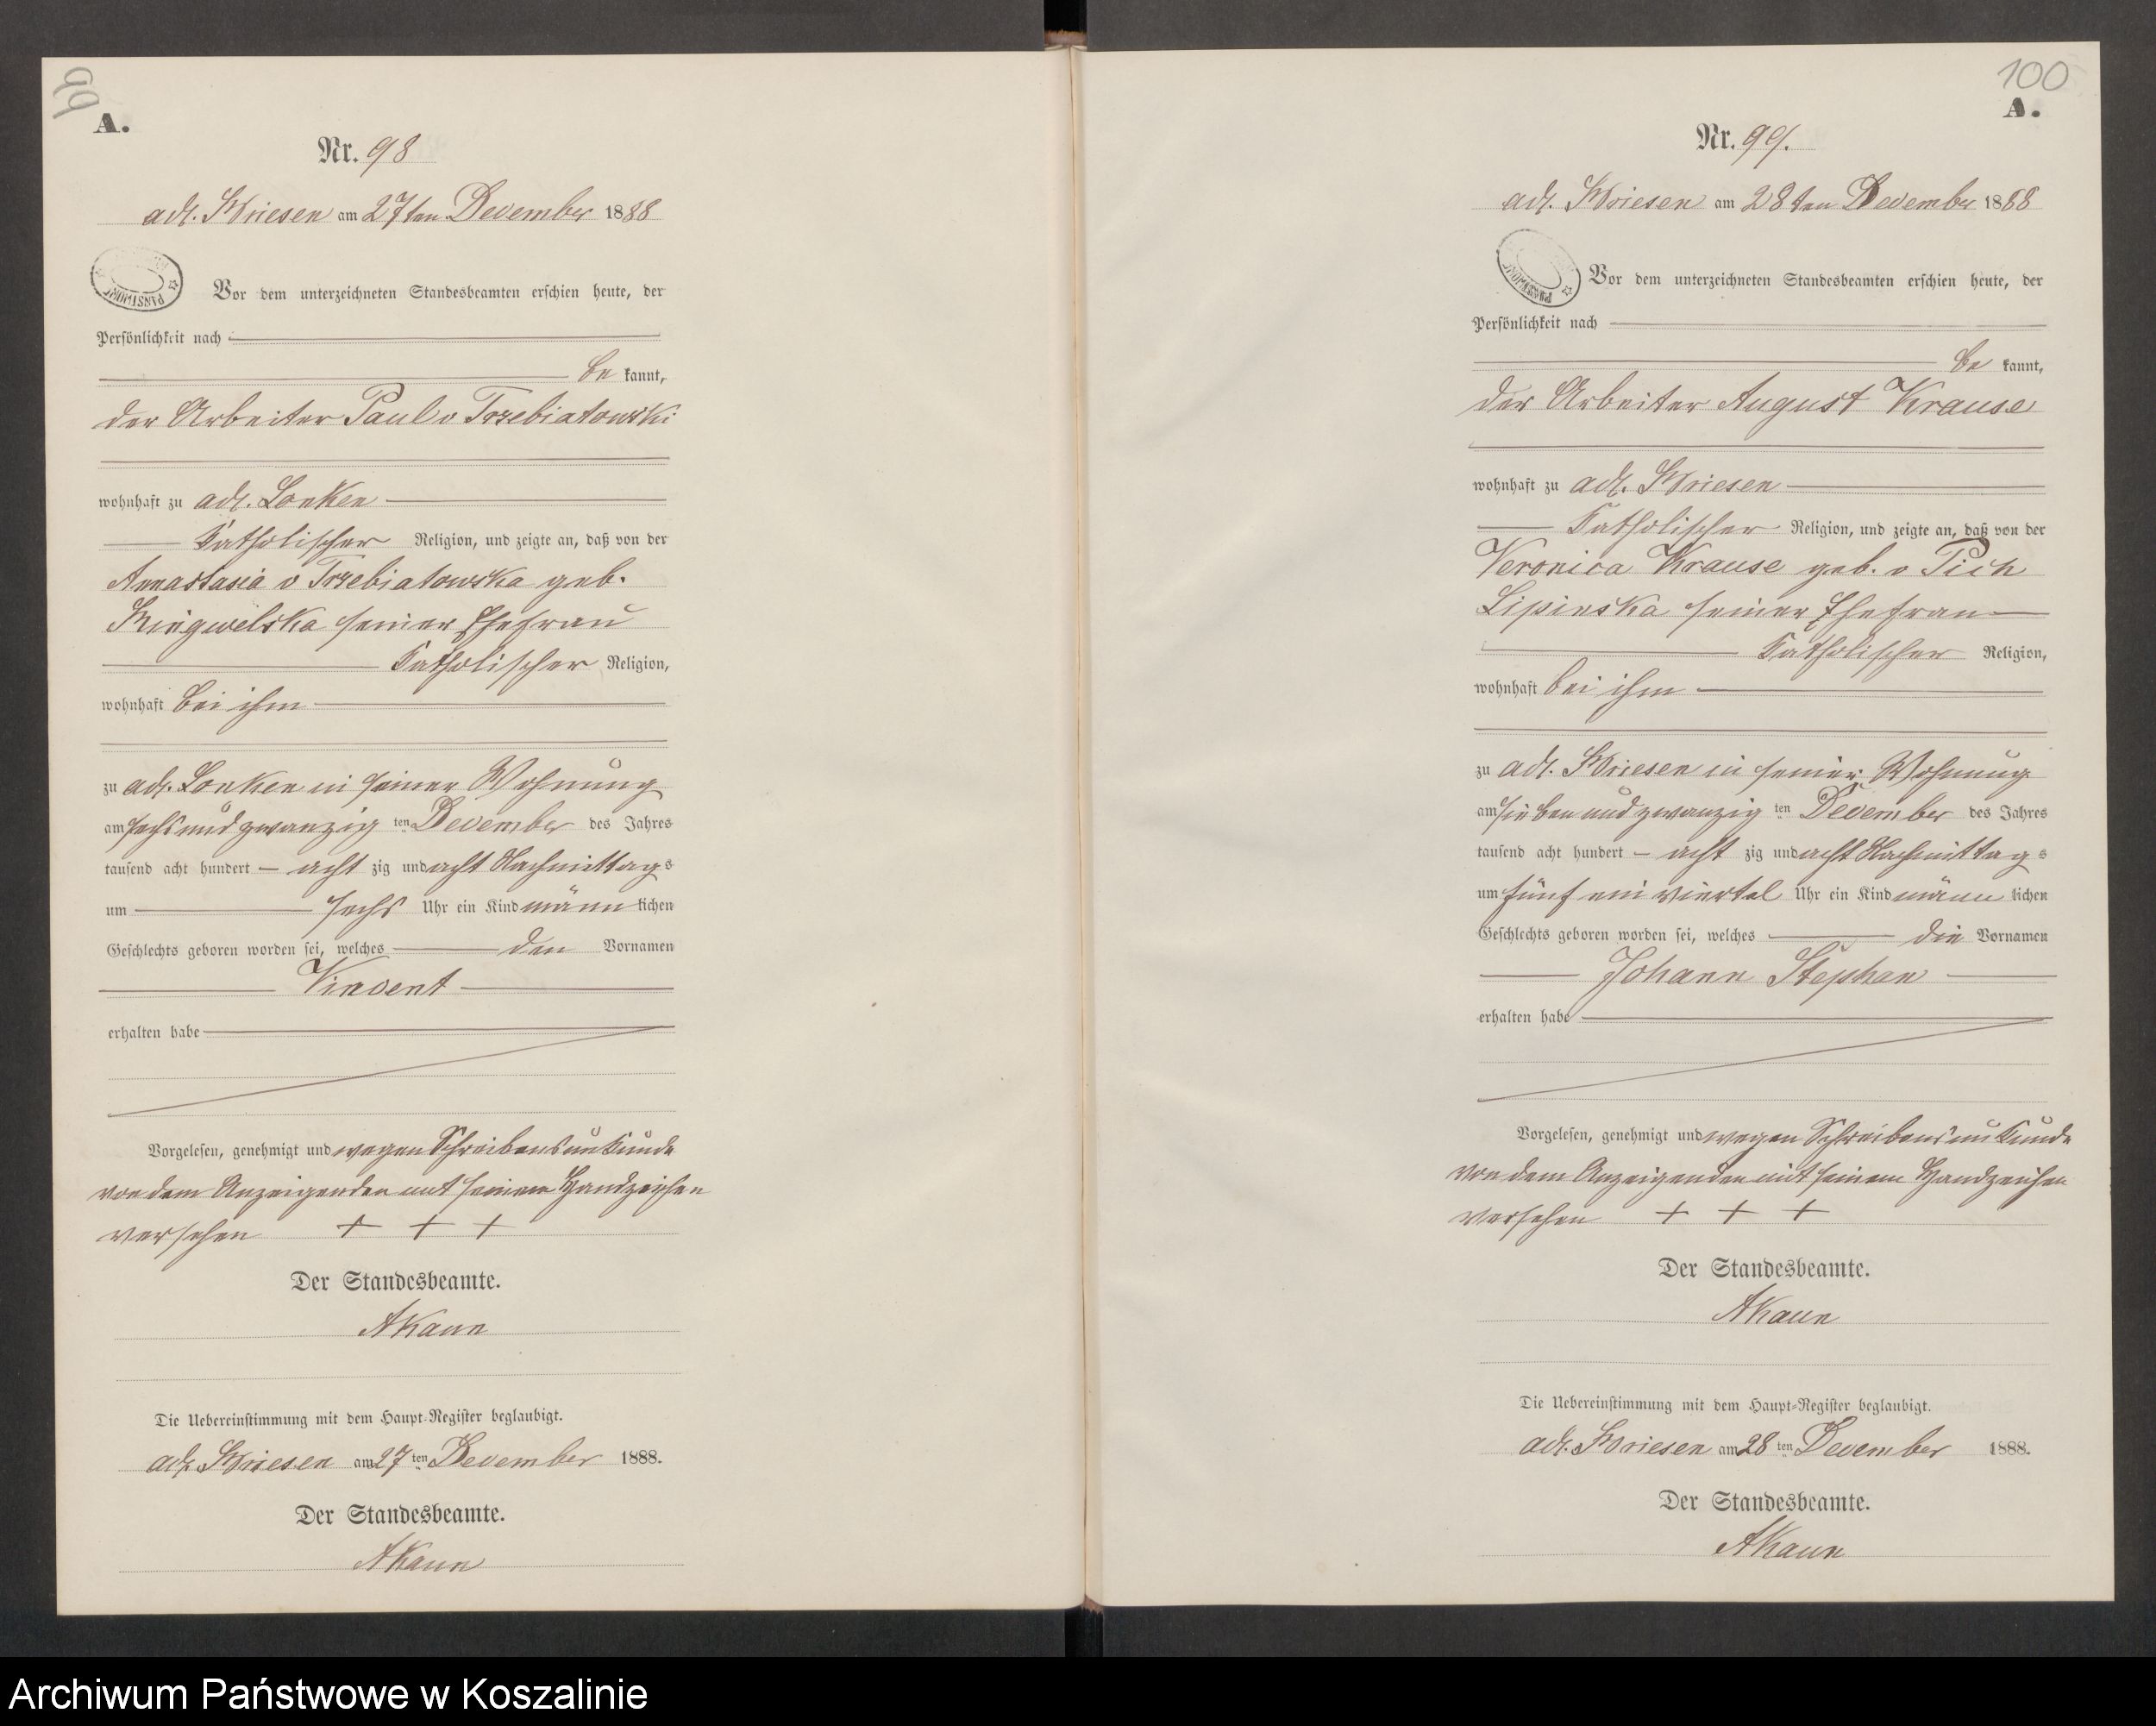 99
A.
Nr. 98
adl. Briesen am 27ten December 1888
Vor dem unterzeichneten Standesbeamten erschien heute, der
Persönlichkeit nach
be kannt,
der Arbeiter Paul v Trzebiatowski
wohnhaft zu adl. Lonken
Katholischer Religion, und zeigte an, daß von der
Annastasia v Trzebiatowska geb.
seiner Ehefrau
Katholischer Religion,
wohnhaft bei ihm
zu adl. Lonken in seiner Wohnung
am sechsundzwanzig ten December des Jahres
tausend acht hundert – acht zig und acht Nachmittags
um sechs Uhr ein Kind männ lichen
Geschlechts geboren worden sei, welches den Vornamen
Vincent
erhalten habe
Vorgelesen, genehmigt und wegen Schreibensunkunde
von dem Anzeigenden mit seinem Handzeichen
versehen + + +
Der Standesbeamte.
AKaun
Die Uebereinstimmung mit dem Haupt-Register beglaubigt.
adl. Briesen am 27 ten December 1888.
Der Standesbeamte.
AKaun
100
A.
Nr. 99.
adl. Briesen am 28ten December 1888
Vor dem unterzeichneten Standesbeamten erschien heute, der
Persönlichkeit nach
be kannt,
der Arbeiter August Krause
wohnhaft zu adl. Briesen
Katholischer Religion, und zeigte an, daß von der
Veronica Krause geb. v Pich
Lipinska seiner Ehefrau
Katholischer Religion,
wohnhaft bei ihm
zu adl. Briesen in seiner Wohnung
am siebenundzwanzig ten December des Jahres
tausend acht hundert – acht zig und acht Nachmittags
um fünf ein viertel Uhr ein Kind männ lichen
Geschlechts geboren worden sei, welches die Vornamen
Johann Stephan
erhalten habe
Vorgelesen, genehmigt und wegen Schreibensunkunde
von dem Anzeigenden mit seinem Handzeichen
versehen + + +
Der Standesbeamte.
AKaun
Die Uebereinstimmung mit dem Haupt-Register beglaubigt.
adl. Briesen am 28 ten December 1888.
Der Standesbeamte.
AKaun
Archiwum Państwowe w Koszalinie